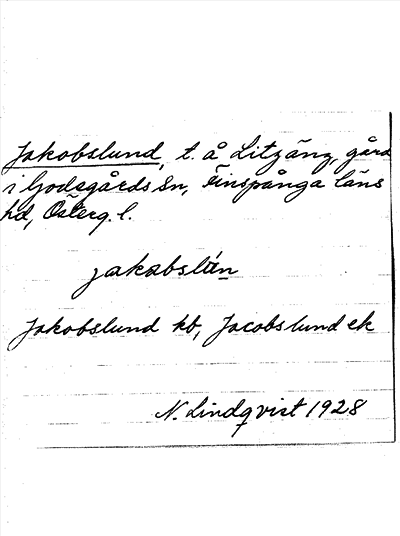 Jakobslund, t. å Litzäng, gård
i Godegårds sn, Finspånga läns
hd, Österg. l.
jakåbslún
Jakobslund kb, Jacobslund ek
N. Lindqvist 1928